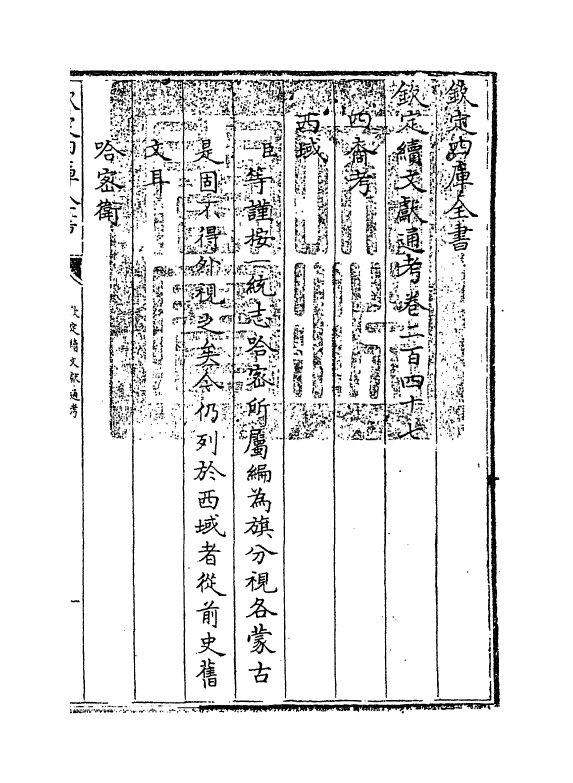 欽定四庫全書
欽定續文獻通考卷二百四十七
四裔考
西域
臣等謹按一統志哈密所屬編為旗分視各蒙古
是固不得外視之矣今仍列於西域者從前史舊
文耳
哈密衛
欽定四庫全書
欽定續文獻通考
一